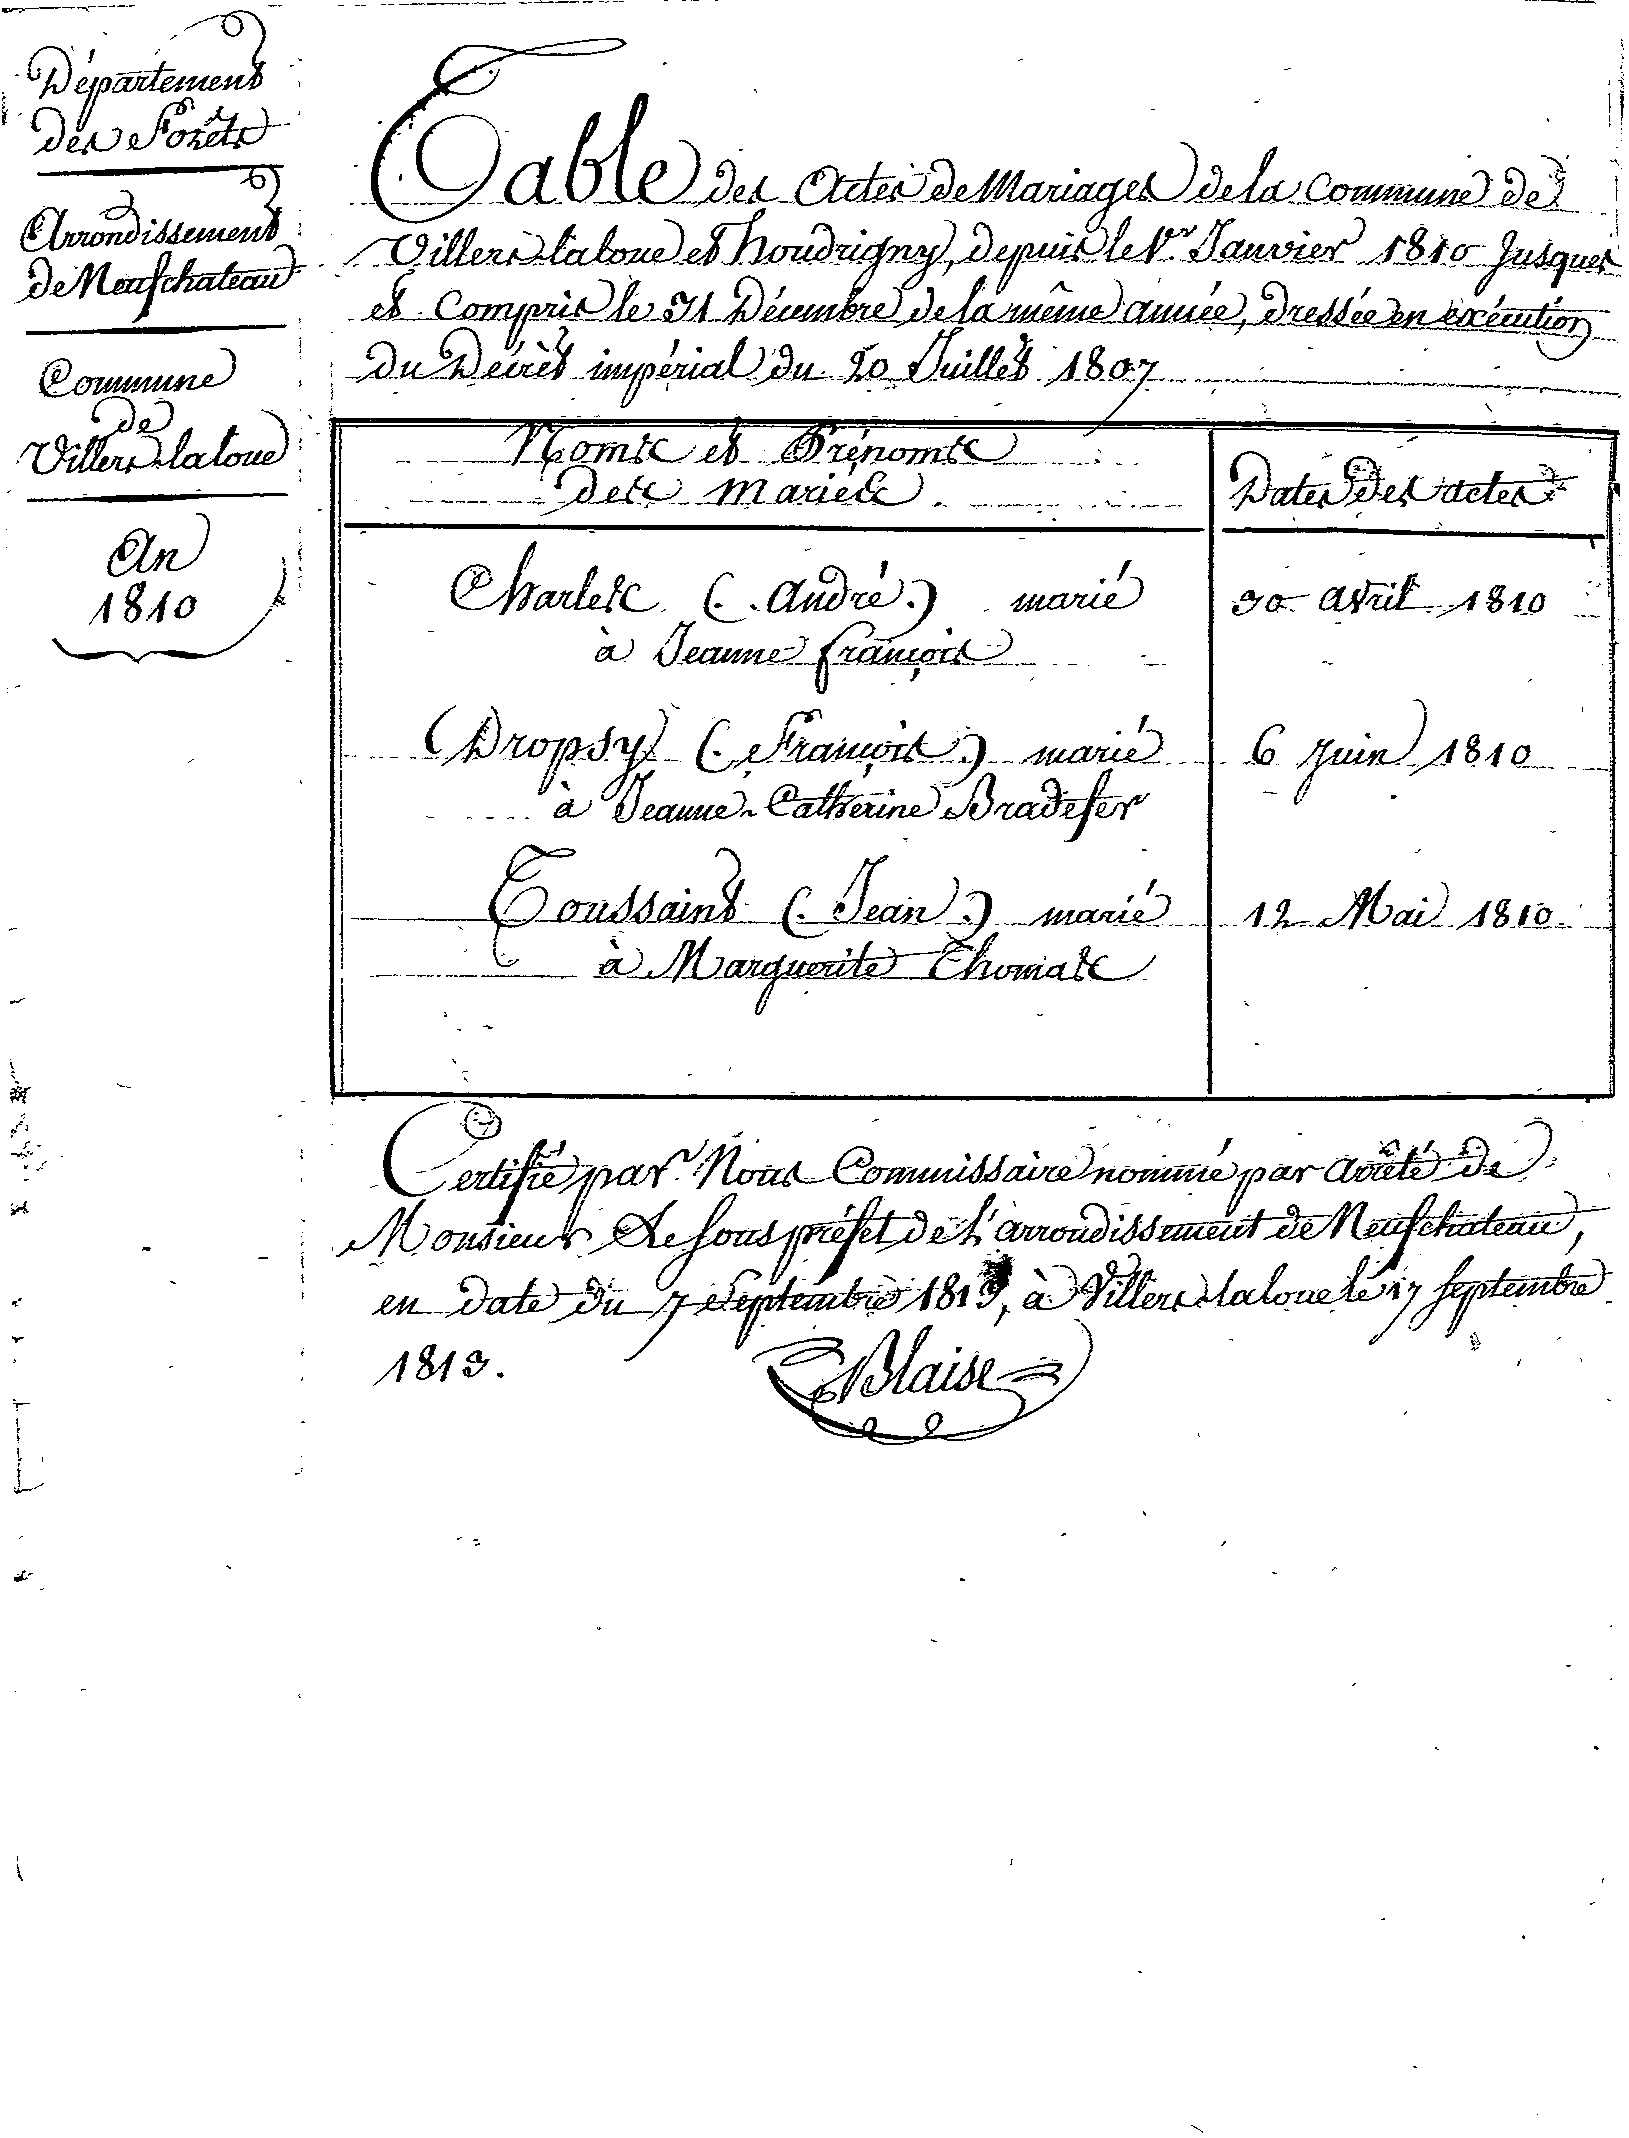 Département
des Forêts
Arrondissement
de Neufchateau
Commune
de
Villers-laloue
An
1810
Table des Actes de Mariages de la Commune de
Villers-laloue et houdrigny, depuis le 1er Janvier 1810 Jusques
et Compris le 31 Décembre de la même année, dressée en exécution
du Décrêt impérial du 20 Juillet 1807
Noms et Prénoms
des mariés
Dates des actes
Charles (André) marié
30 avril 1810
à Jeanne françois
Dropsy (François) marié
6 juin 1810
à Jeanne-Catherine Bradefer
Toussaint (Jean) marié
12 Mai 1810
à Marguerite Thomas
Certifié par Nous Commissaire nommé par arrêté de
Monsieur Le sous préfet de L'arrondissement de Neufchateau,
en date du 7 Septembre 1813, à Villers-laloue le 17 septembre
1813.
Blaise